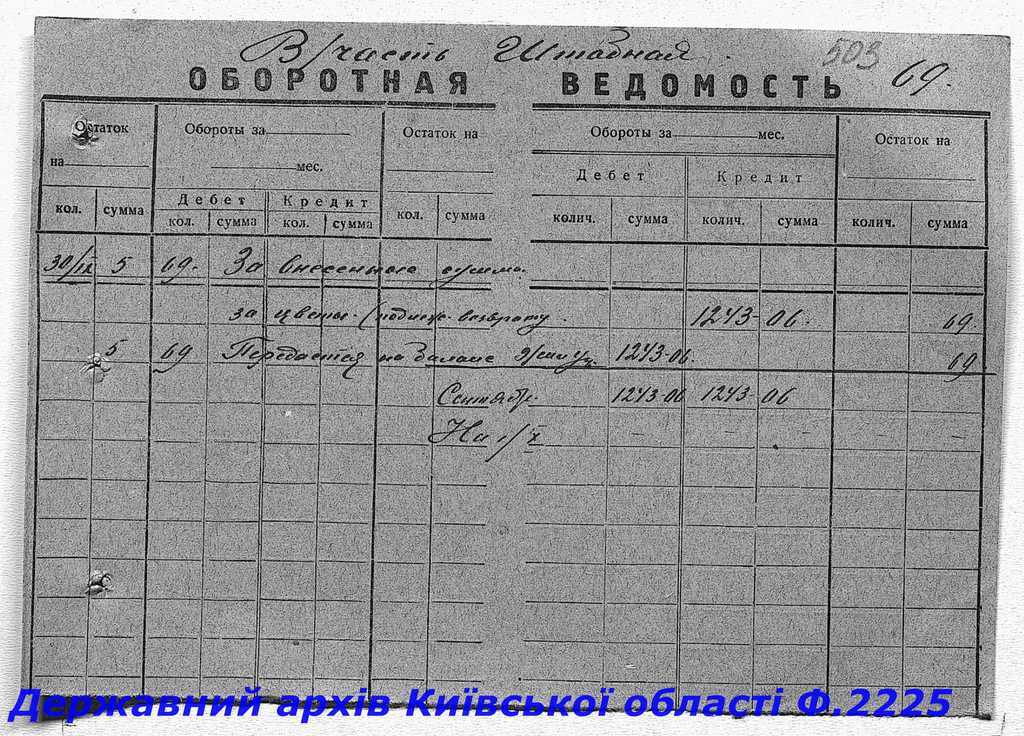 В/часть Штабная.
503
69.
ОБОРОТНАЯ ВЕДОМОСТЬ
Остаток Обороты за Остаток на Обороты за мес. Остаток на
на мес.
Дебет Кредит
Дебет Кредит
кол. сумма кол. сумма кол. сумма кол. сумма колич. сумма колич. сумма колич. сумма
30/IX 5 69. За внесенные сумма.
за цветы. возврату. 1243-06. 69.
5 69 Передается на баланс 1243-06. 69
Сентябр. 1243-06 1243-06
На 1/X - - - -
Державний архів Київської області Ф.2225